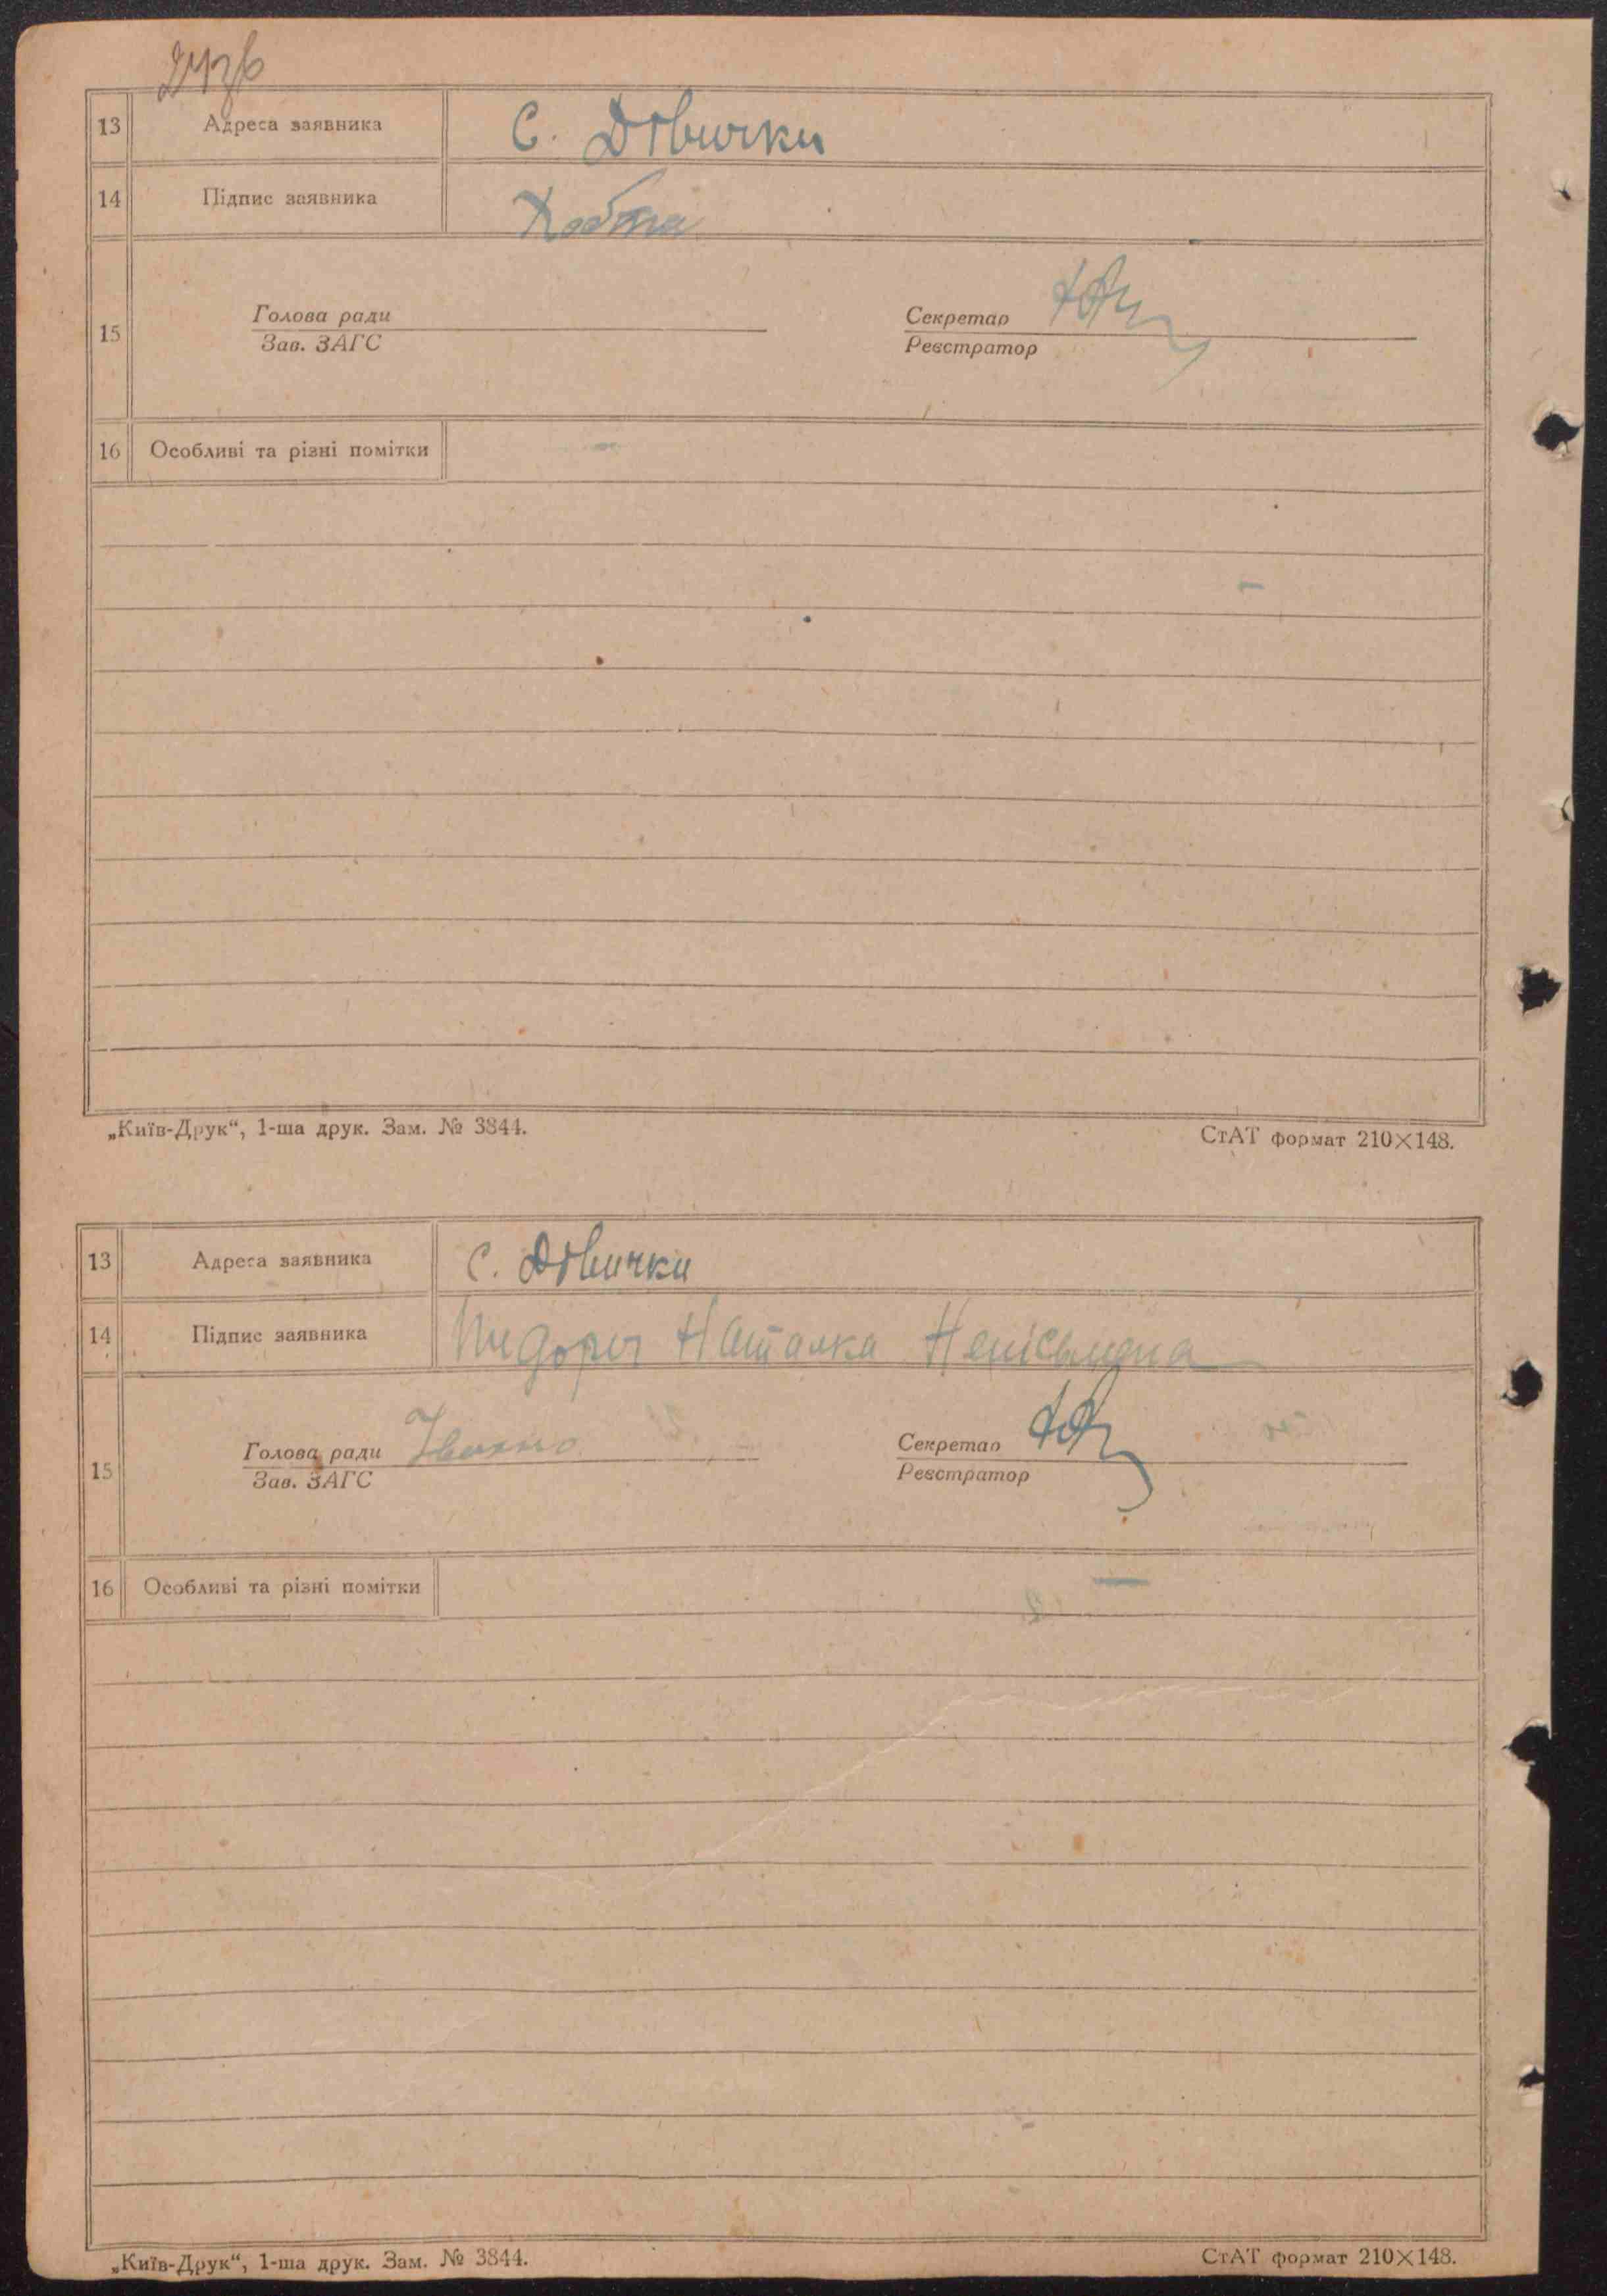 13 Адреса заявника С. Дівички
14 Підпис заявника Хобта
15
Голова ради Секретар
Зав. ЗАГС Реєстратор
16 Особливі та різні помітки —
„Київ-Друк“, 1-ша друк. Зам. № 3844. СтАТ формат 210×148.
13 Адреса заявника С. Дівички
14 Підпис заявника Наталка Неписьмена
15
Голова ради Секретар
Зав. ЗАГС Реєстратор
16 Особливі та різні помітки —
„Київ-Друк“, 1-ша друк. Зам. № 3844. СтАТ формат 210×148.